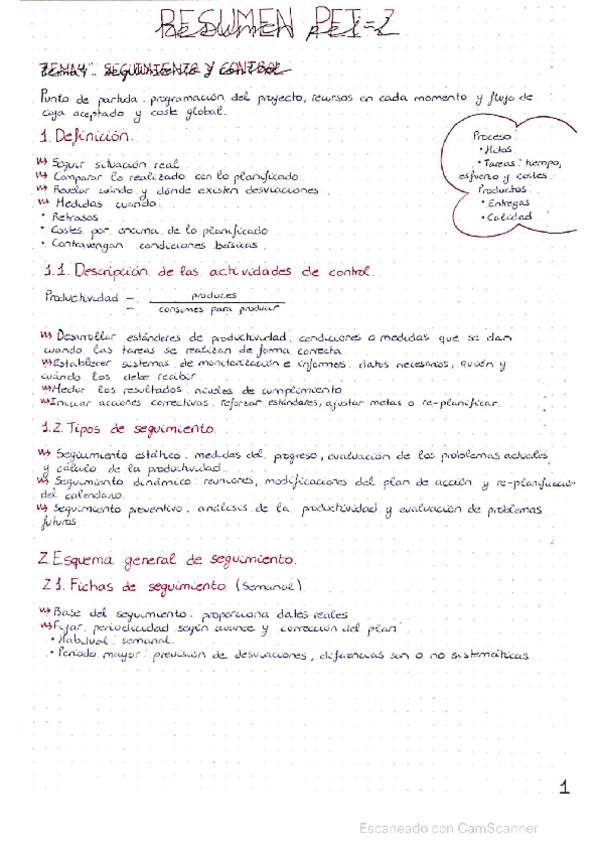 RESUMEN PEI-2
TEMA 4: SEGUIMIENTO Y CONTROL
Punto de partida: programación del proyecto, recursos en cada momento y flujo de
caja aceptado y coste global.
1. Definición.
Seguir situación real
Comparar lo realizado con lo planificado
Revelar cuándo y dónde existen desviaciones
Medidas cuando:
• Retrasos
• Costes por encima de lo planificado
• Contravengan condiciones básicas.
Proceso:
• Hitos
• Tareas: tiempo,
esfuerzo y costes.
Productos:
• Entregas
• Calidad
1.1. Descripción de las actividades de control.
Productividad = produces
consumes para producir
Desarrollar estándares de productividad: condiciones o medidas que se dan
cuando las tareas se realizan de forma correcta.
Establecer sistemas de monitorización e informes: datos necesarios, quién y
cuándo los debe recibir.
Medir los resultados: niveles de cumplimiento
Iniciar acciones correctivas: reforzar estándares, ajustar metas o re-planificar.
1.2. Tipos de seguimiento.
Seguimiento estático: medidas del progreso, evaluación de los problemas actuales
y cálculo de la productividad.
Seguimiento dinámico: reuniones, modificaciones del plan de acción y re-planificación
del calendario.
Seguimiento preventivo: análisis de la productividad y evaluación de problemas
futuros
2. Esquema general de seguimiento.
2.1. Fichas de seguimiento (Semanal)
Base del seguimiento: proporciona datos reales
Fijar periodicidad según avance y corrección del plan
• Habitual: semanal.
• Periodo mayor: previsión de desviaciones, diferencias son o no sistemáticas
1
Escaneado con CamScanner